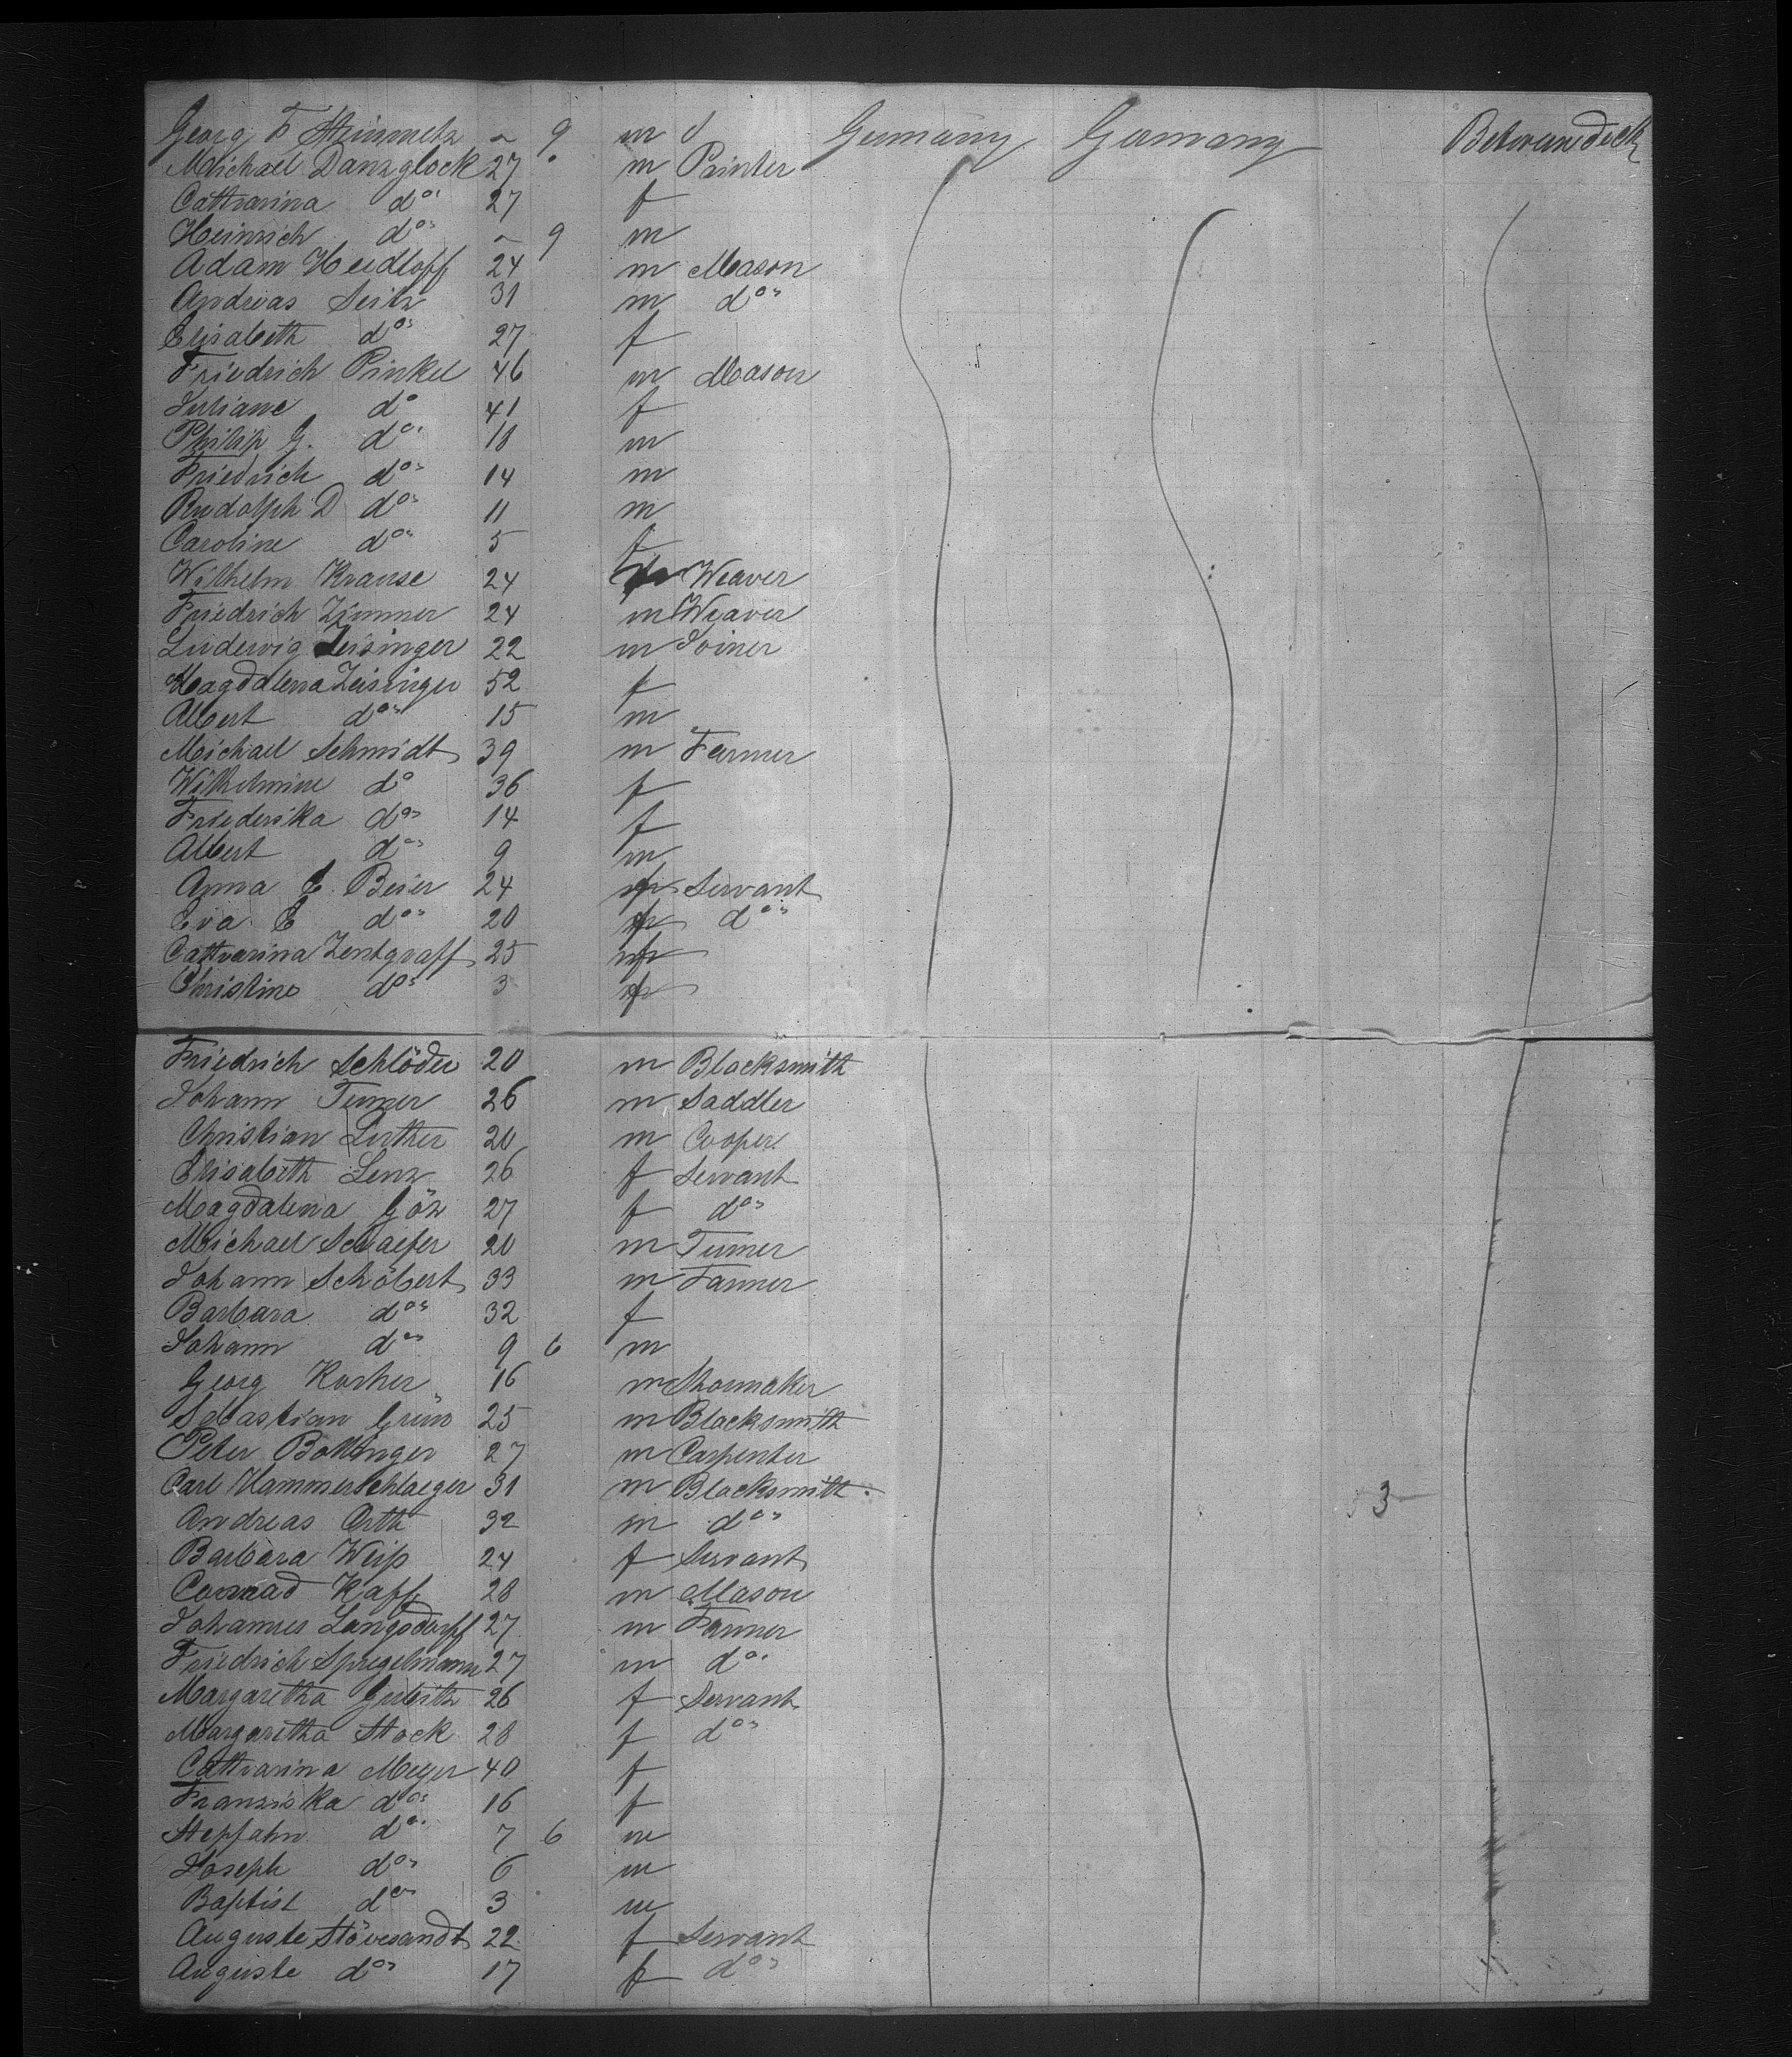 Georg F Steinmetz ~ 9 m d Germany Germany Between deck
Michael Danzglock 27 m Painter
Catharina do 27 f
Heinrich do ~ 9 m
Adam Heidloff 24 m Mason
Andreas Seitz 31 m do
Elisabeth do 27 f
Friedrich Pinkel 46 m Mason
Juliane do 41 f
Philip G. do 18 m
Friedrich do 14 m
Rudolph D do 11 m
Caroline do 5 f
Wilhelm Krause 24 m Weaver
Friedrich Zimmer 24 m Weaver
Ludewig Zeisinger 22 m Joiner
Magdalena Zeisinger 52 f
Albert do 15 m
Michael Schmidt 39 m Farmer
Wilhelmine do 36 f
Friederika do 14 f
Albert do 9 m
Anna E. Beier 24 f Servant
Eva E do 20 f do
Catharina Zentgraff 25 f
Christine do 3 f
Friedrich Schlöder 20 m Blacksmith
Johann Turner 26 m Saddler
Christian Luther 20 m Cooper
Elisabeth Lenz 26 f Servant
Magdalena Göz 27 f do
Michael Schaefer 20 m Turner
Johann Schöbert 33 m Farmer
Barbara do 32 f
Johann do 9 6 m
Georg Korher 16 m Shoemaker
Sebastian Grün 25 m Blacksmith
Peter Bollinger 27 m Carpenter
Carl Hammerschlaeger 31 m Blacksmith 3
Andreas Orth 32 m do
Barbara Weiß 24 f Servant
Conrad Kaff 28 m Mason
Johannes Langsdorff 27 m Farmer
Friedrich Spregelmann 27 m do
Margaretha 26 f Servant
Margaretha Stock 28 f do
Catharina Meyer 40 f
Franziska do 16 f
Stepfahn do 7 6 m
Joseph do 6 m
Baptist do 3 m
Auguste Stövesandt 22 f Servant
Auguste do 17 f do